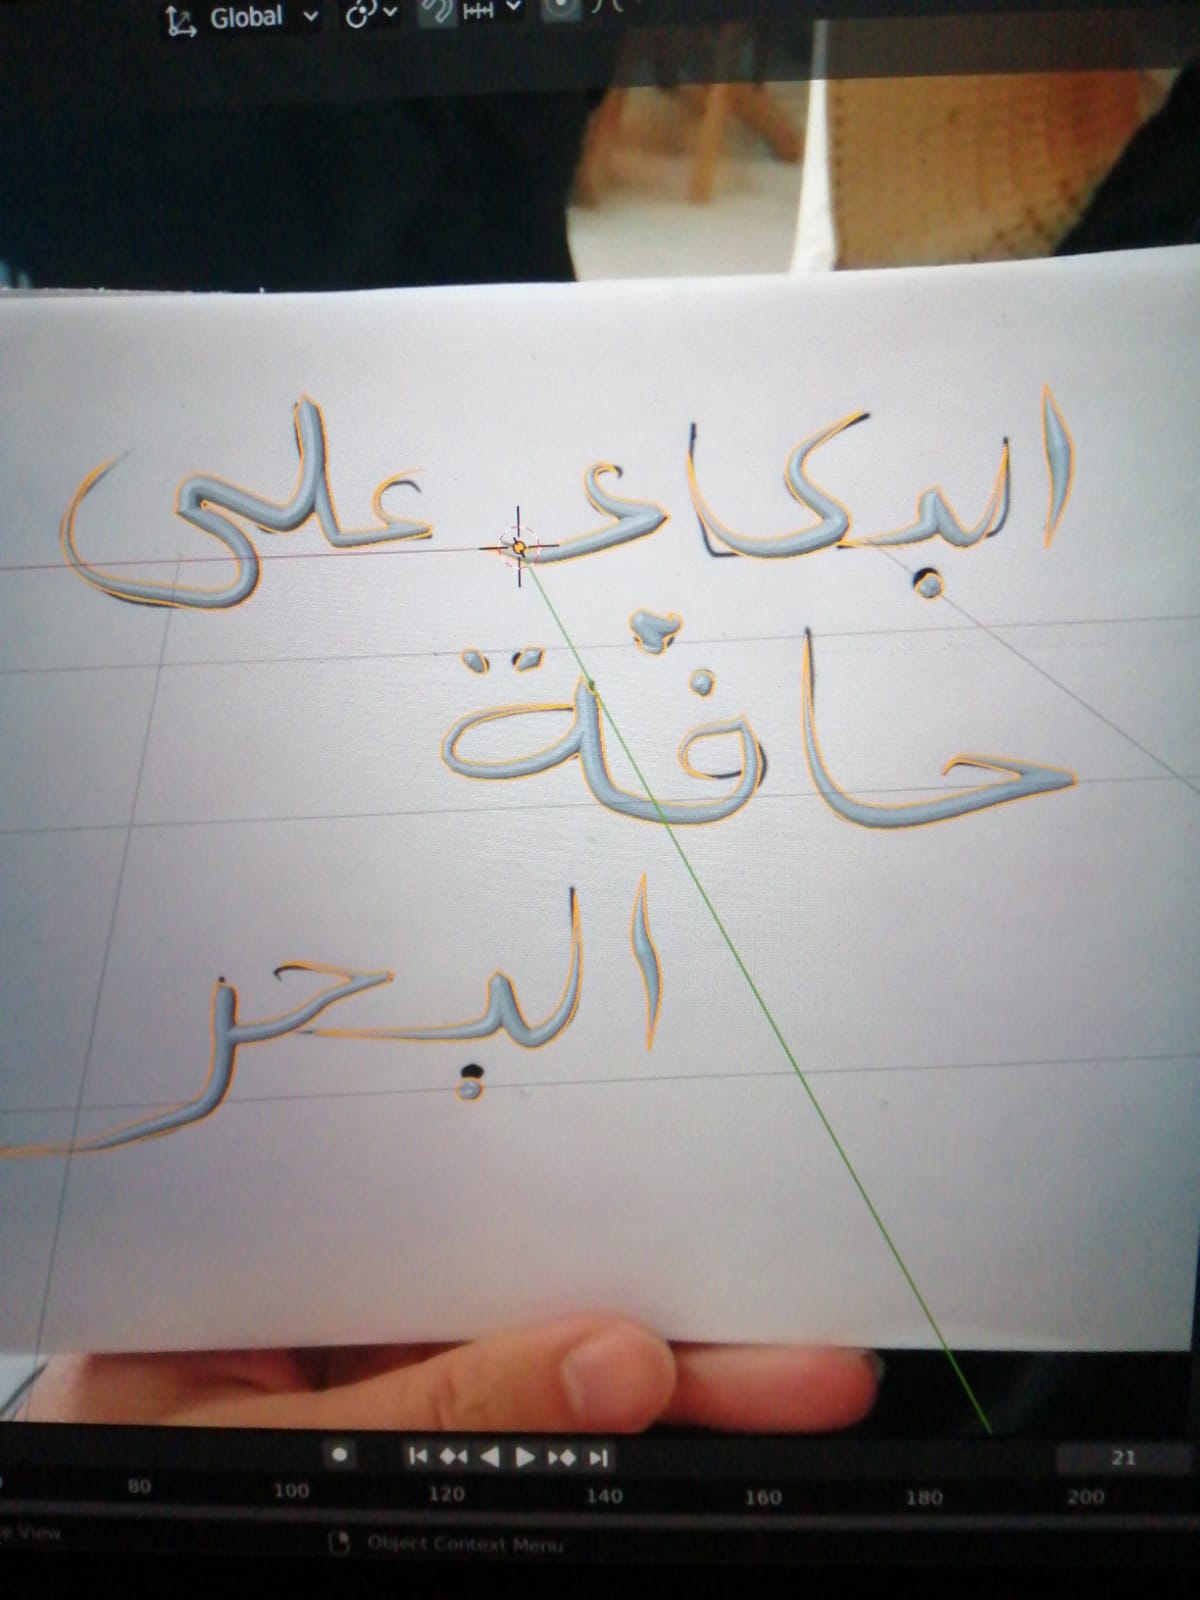 Global
البكاء على
حافّة
البحر
21
80 100 120 140 160 180 200
e View
Object Context Menu